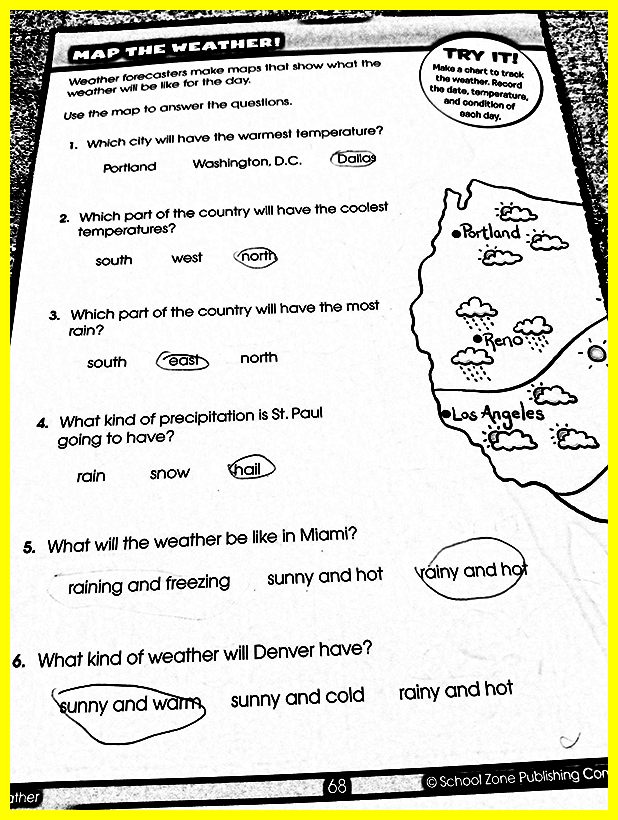 MAP THE WEATHER!
Weather forecasters make maps that show what the
weather will be like for the day.
Use the map to answer the questions.
TRY IT!
Make a chart to track
the weather. Record
the date, temperature,
and condition of
each day.
1. Which city will have the warmest temperature?
Portland Washington, D.C. Dallas
2. Which part of the country will have the coolest
temperatures?
south west north
3. Which part of the country will have the most
rain?
south east north
4. What kind of precipitation is St. Paul
going to have?
rain snow hail
5. What will the weather be like in Miami?
raining and freezing sunny and hot rainy and hot
6. What kind of weather will Denver have?
sunny and warm sunny and cold rainy and hot
Portland
Reno
Los Angeles
ather
68
© School Zone Publishing Com